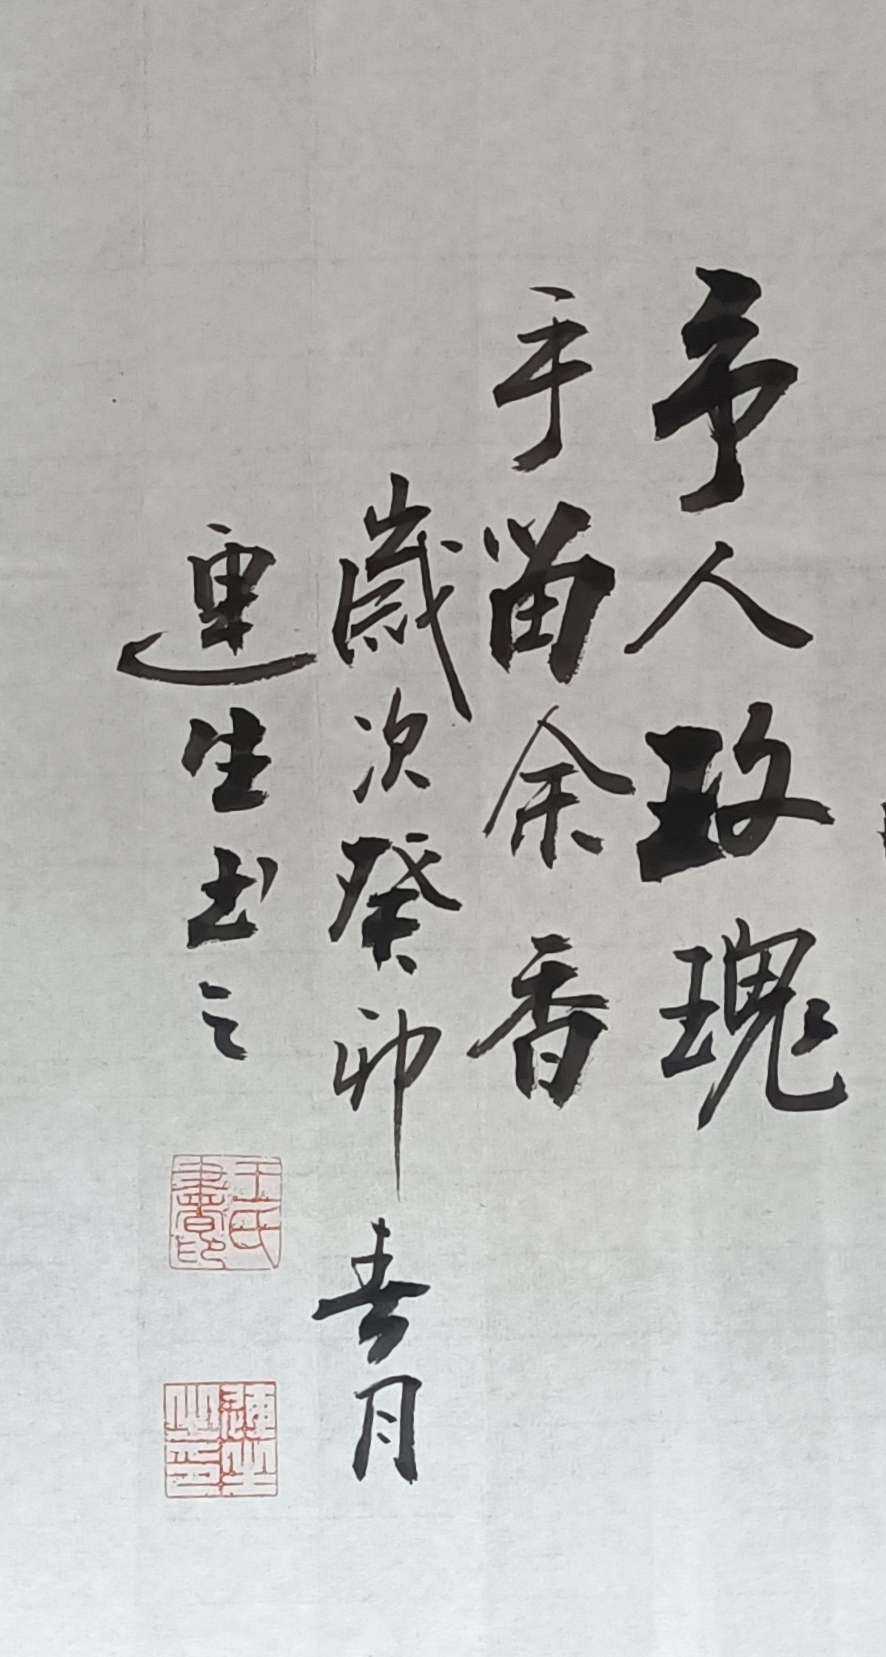 予人玫瑰
手留余香
歲次癸卯春月
連生书之
王氏書印
連生之印